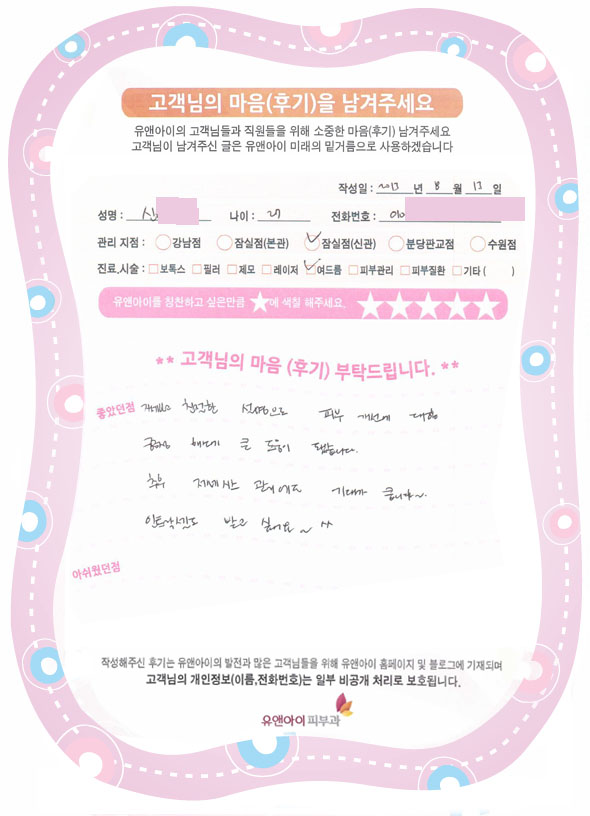 고객님의 마음(후기)을 남겨주세요
유앤아이의 고객님들과 직원들을 위해 소중한 마음(후기) 남겨주세요
고객님이 남겨주신 글은 유앤아이 미래의 밑거름으로 사용하겠습니다
작성일 : 2013 년 8 월 13 일
성명 : 신 나이 : 전화번호 : 010
관리 지점 : 강남점 잠실점(본관) 잠실점(신관) 분당판교점 수원점
진료,시술 : 보톡스 필러 제모 레이저 여드름 피부관리 피부질환 기타 ( )
유앤아이를 칭찬하고 싶은만큼 ★에 색칠 해주세요. ★★★★★
** 고객님의 마음 (후기) 부탁드립니다. **
좋았던점 친절한 설명으로 피부 개선에 대한
궁금증 해소에 큰 도움이 됐습니다.
추후 관리에도 기대가 큽니다~.
받고 싶어요~ ^^
아쉬웠던점
작성해주신 후기는 유앤아이의 발전과 많은 고객님들을 위해 유앤아이 홈페이지 및 블로그에 기재되며
고객님의 개인정보(이름,전화번호)는 일부 비공개 처리로 보호됩니다.
유앤아이피부과